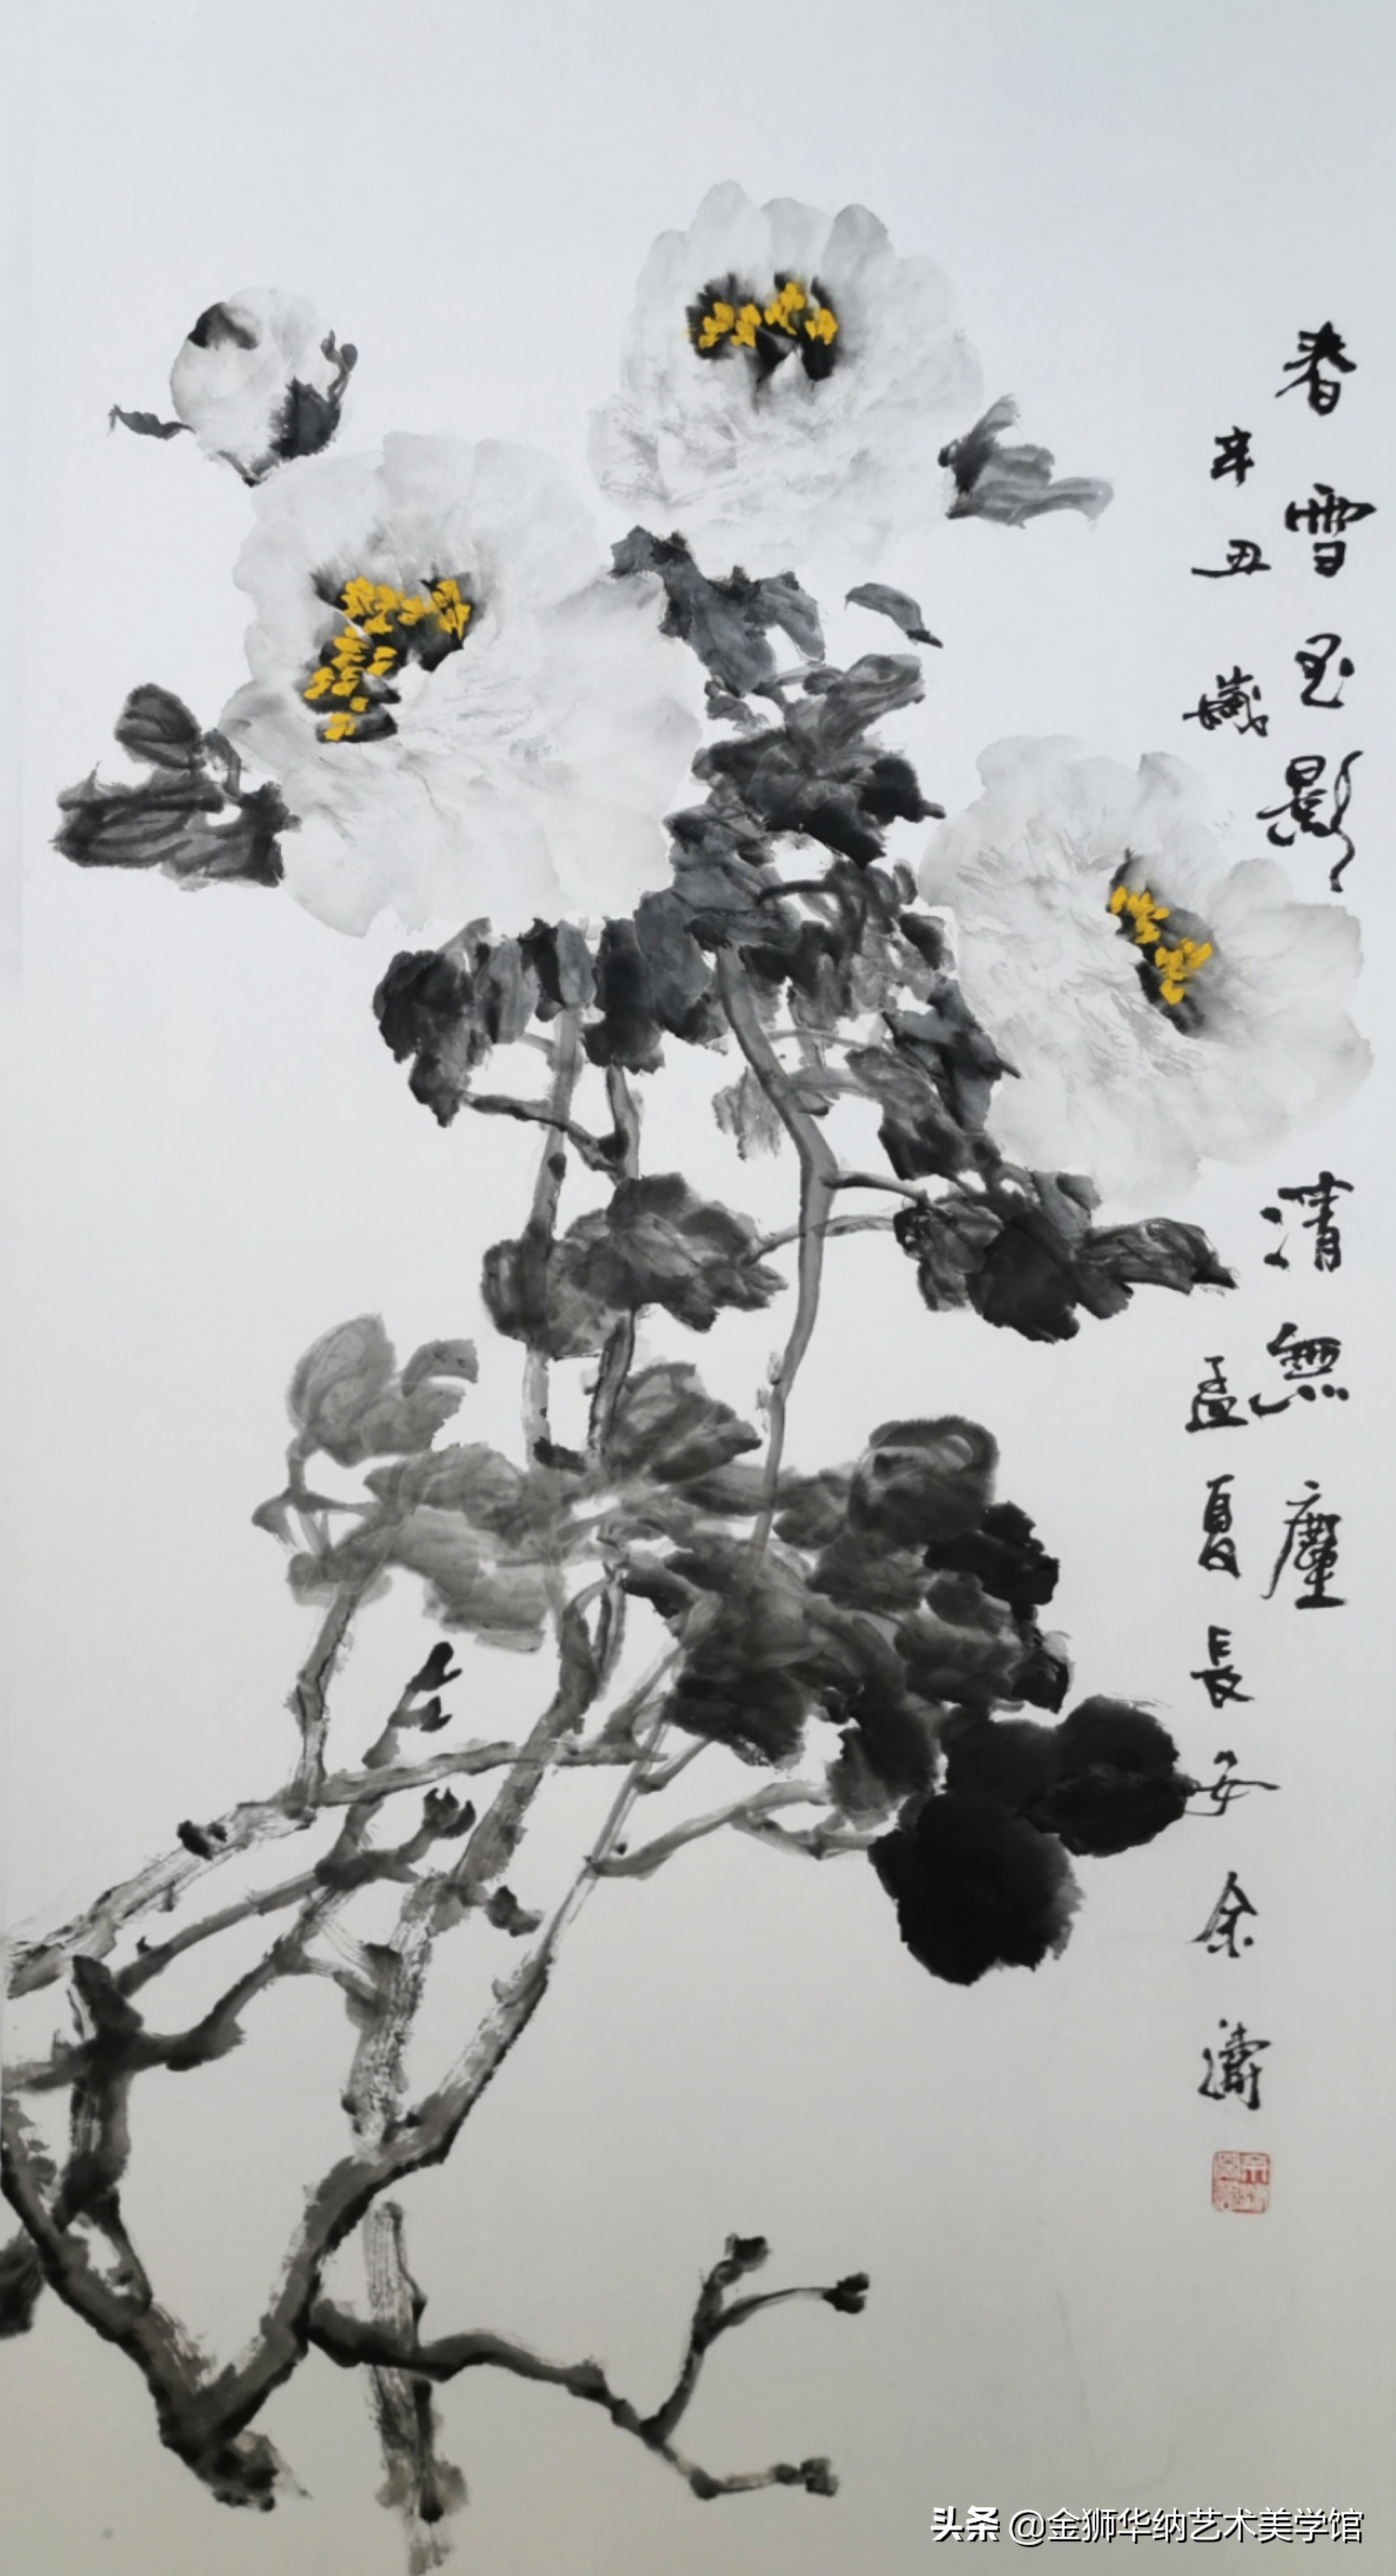 春雪玉影清無塵
辛丑歲孟夏長安余濤
头条 @金狮华纳艺术美学馆